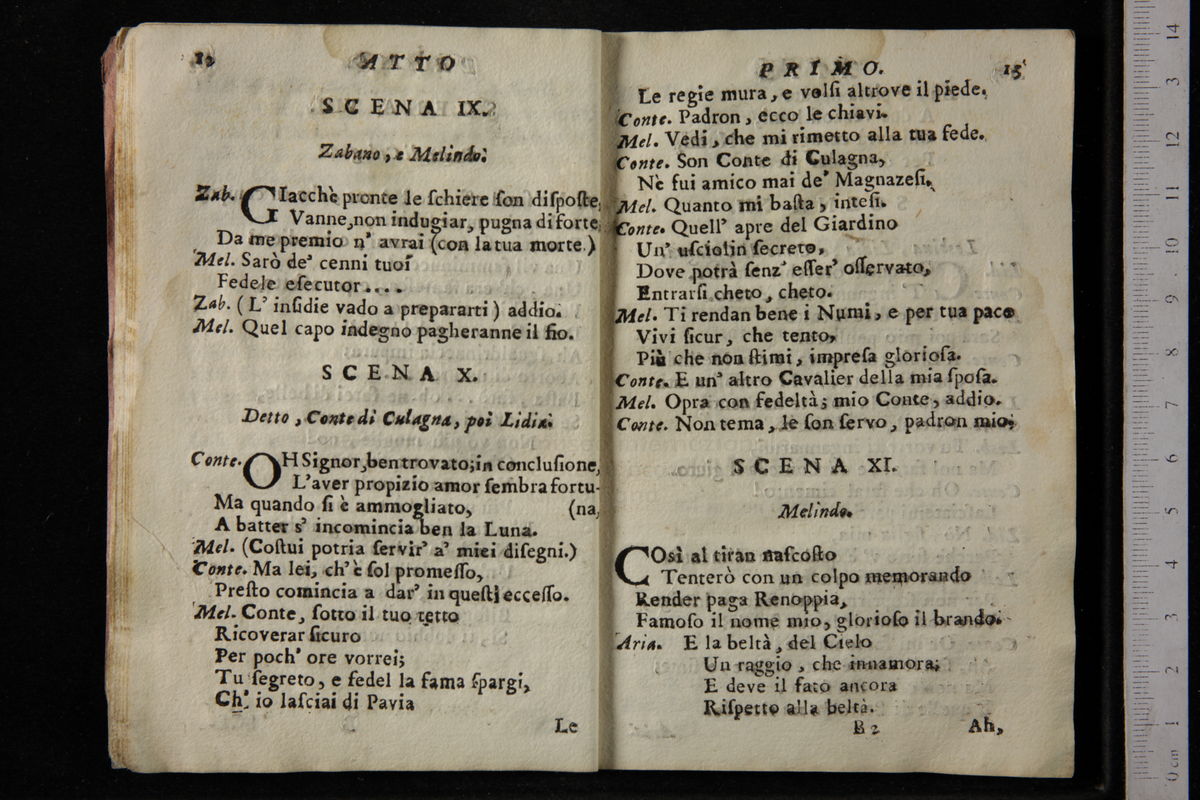 12 ATTO
SCENA IX.
Zabano, e Melindo.
Zab. GIacchè pronte le ſchiere ſon diſpoſte,
Vanne, non indugiar, pugna di forte,
Da me premio n' avrai (con la tua morte.)
Mel. Sarò de' cenni tuoi
Fedele eſecutor....
Zab. (L' inſidie vado a prepararti) addio.
Mel. Quel capo indegno pagheranne il fio.
SCENA X.
Detto, Conte di Culagna, poi Lidia.
Conte. OH Signor, ben trovato; in concluſione,
L'aver propizio amor ſembra fortu-
Ma quando ſi è ammogliato, (na,
A batter s' incomincia ben la Luna.
Mel. (Coſtui potria ſervir' a' miei diſegni.)
Conte. Ma lei, ch' è ſol promeſſo,
Preſto comincia a dar' in queſti ecceſſo.
Mel. Conte, ſotto il tuo tetto
Ricoverar ſicuro
Per poch' ore vorrei;
Tu ſegreto, e fedel la fama ſpargi,
Ch' io laſciai di Pavia
Le
PRIMO. 15
Le regie mura, e volſi altrove il piede.
Conte. Padron, ecco le chiavi.
Mel. Vedi, che mi rimetto alla tua fede.
Conte. Son Conte di Culagna,
Nè fui amico mai de' Magnazeſi.
Mel. Quanto mi baſta, inteſi.
Conte. Quell' apre del Giardino
Un' uſciolin ſecreto,
Dove potrà ſenz' eſſer' oſſervato,
Entrarſi cheto, cheto.
Mel. Ti rendan bene i Numi, e per tua pace
Vivi ſicur, che tento,
Più che non ſtimi, impreſa glorioſa.
Conte. E un' altro Cavalier della mia ſpoſa.
Mel. Opra con fedeltà; mio Conte, addio.
Conte. Non tema, le ſon ſervo, padron mio;
SCENA XI.
Melindo.
COsì al tiran naſcoſto
Tenterò con un colpo memorando
Render paga Renoppia,
Famoſo il nome mio, glorioſo il brando.
Aria. E la beltà, del Cielo
Un raggio, che innamora;
E deve il fato ancora
Riſpetto alla beltà.
B 2 Ah,